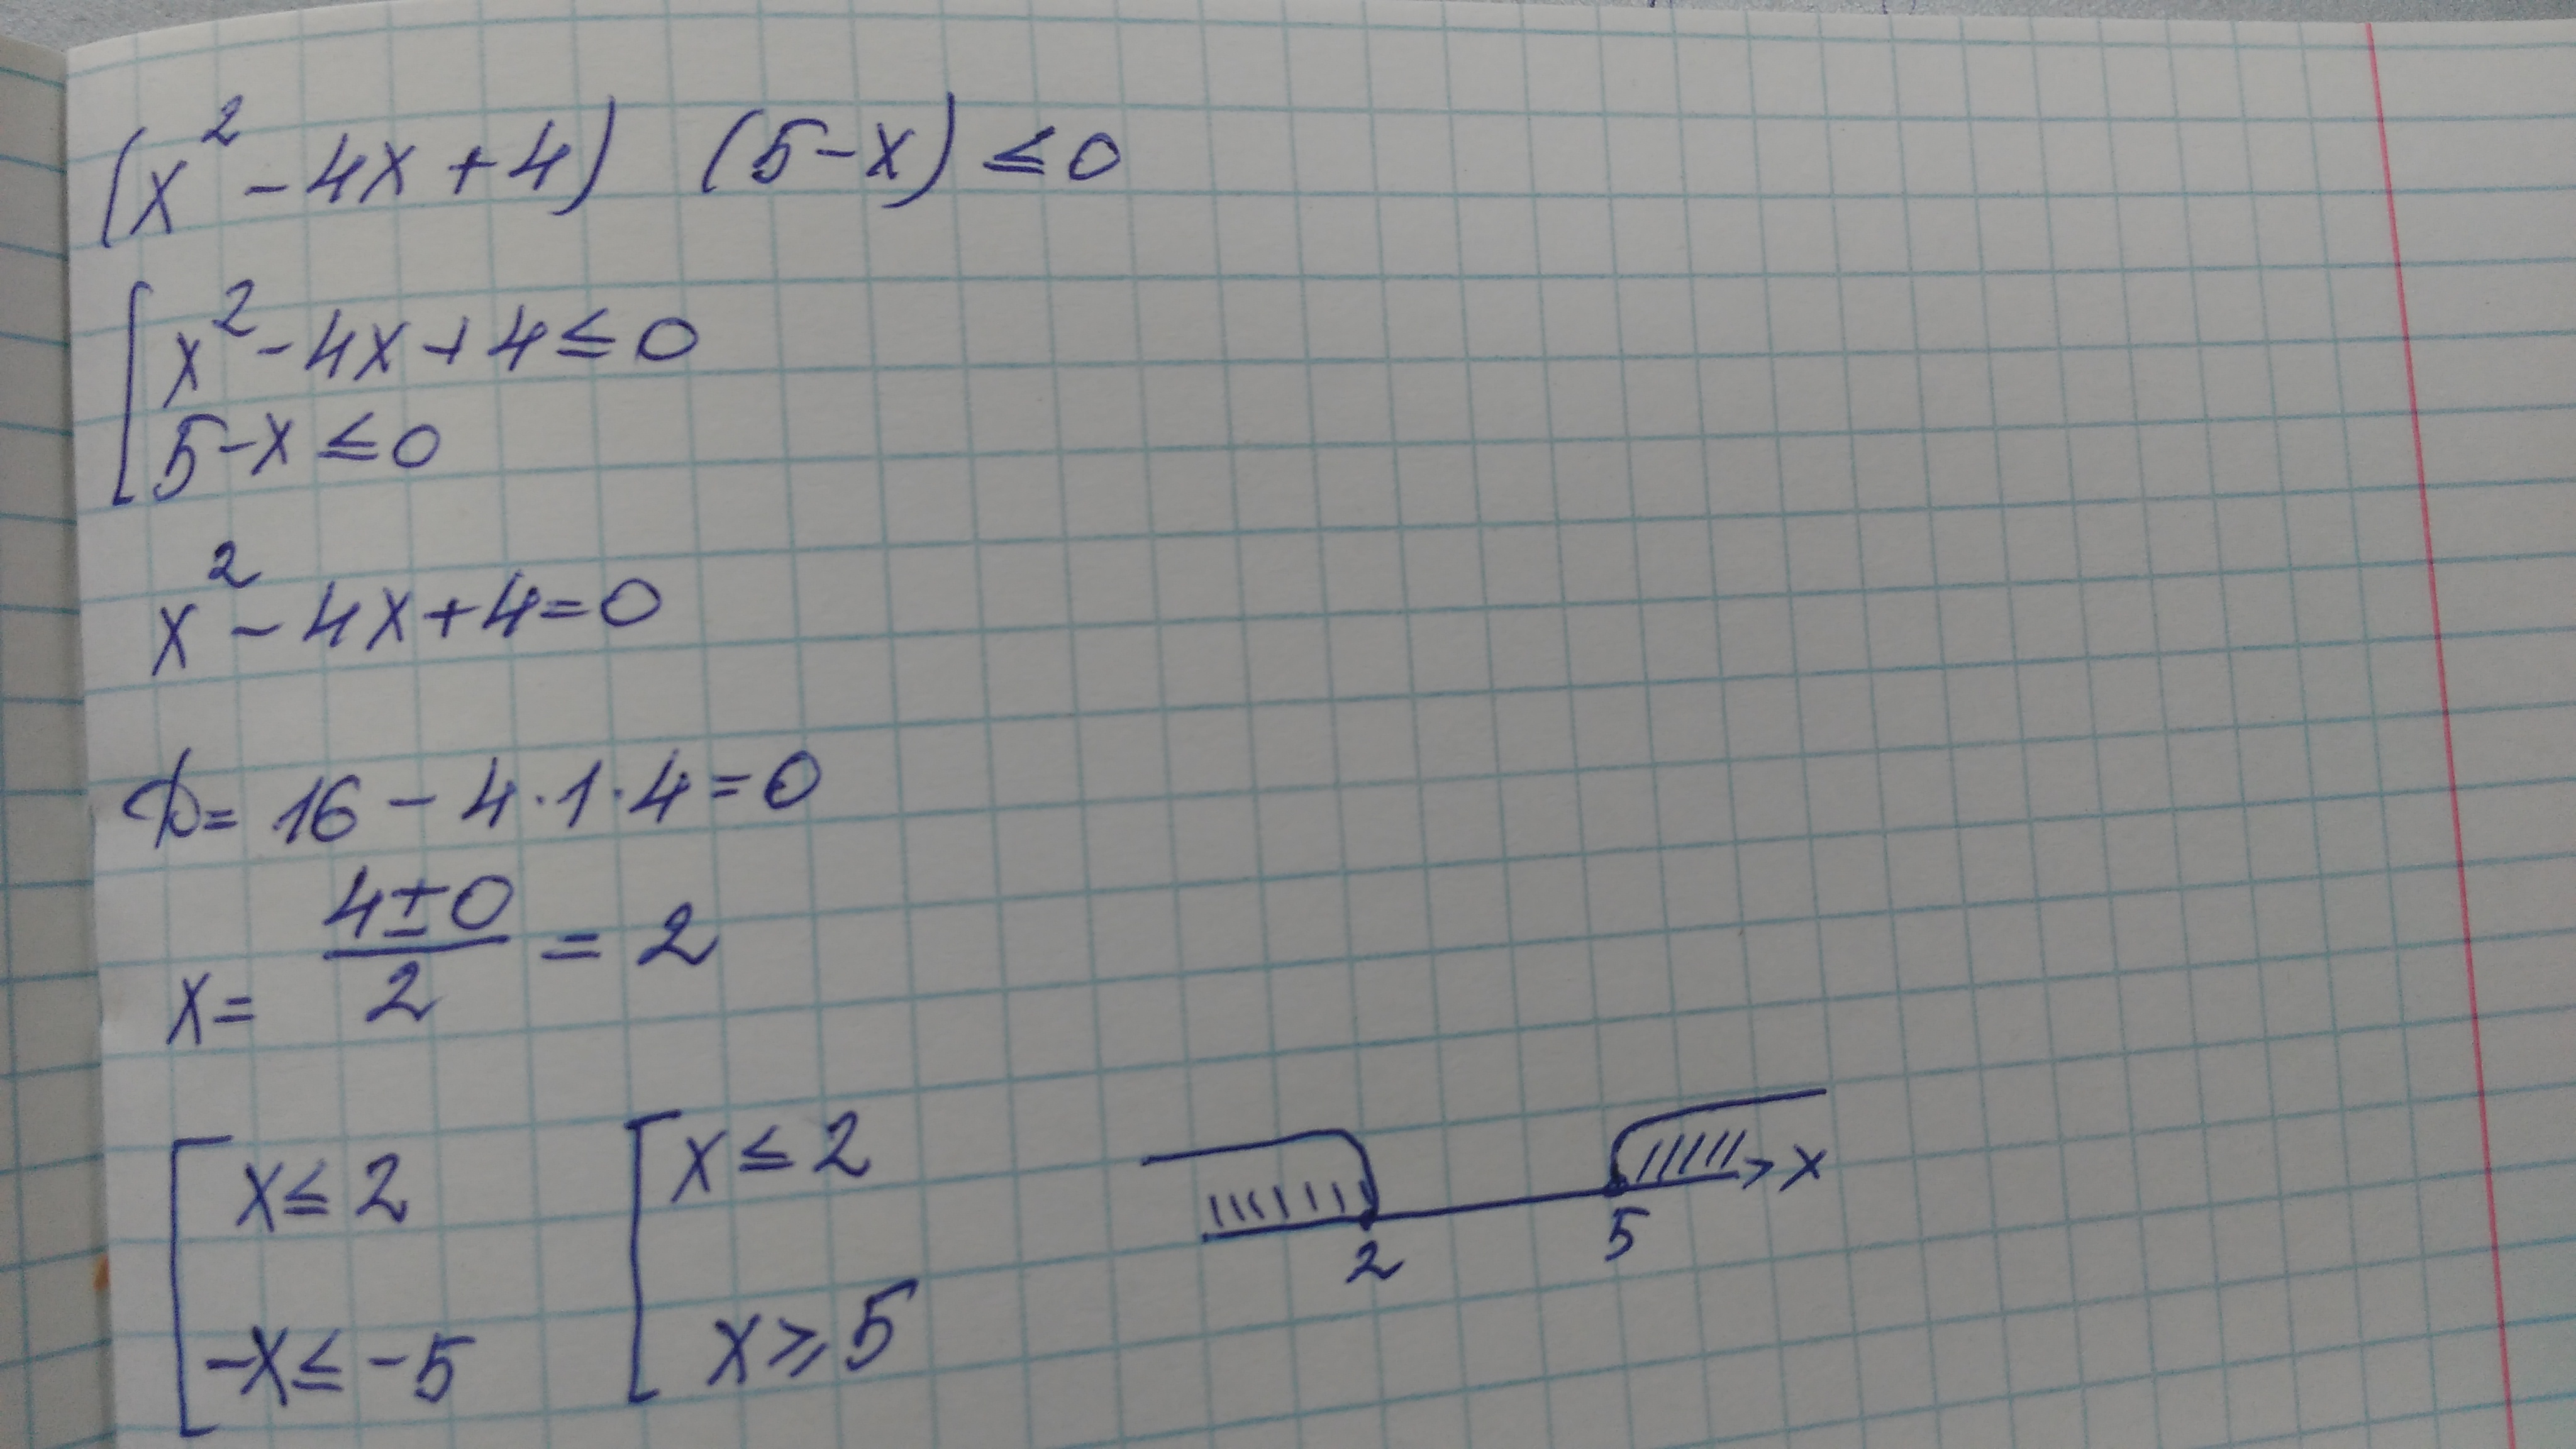 (x² - 4x + 4) (5 - x) ≤ 0
x² - 4x + 4 ≤ 0
5 - x ≤ 0
x² - 4x + 4 = 0
D = 16 - 4 · 1 · 4 = 0
x = (4 ± 0)/2 = 2
x ≤ 2 x ≤ 2
-x ≤ -5 x ≥ 5
2 5 x